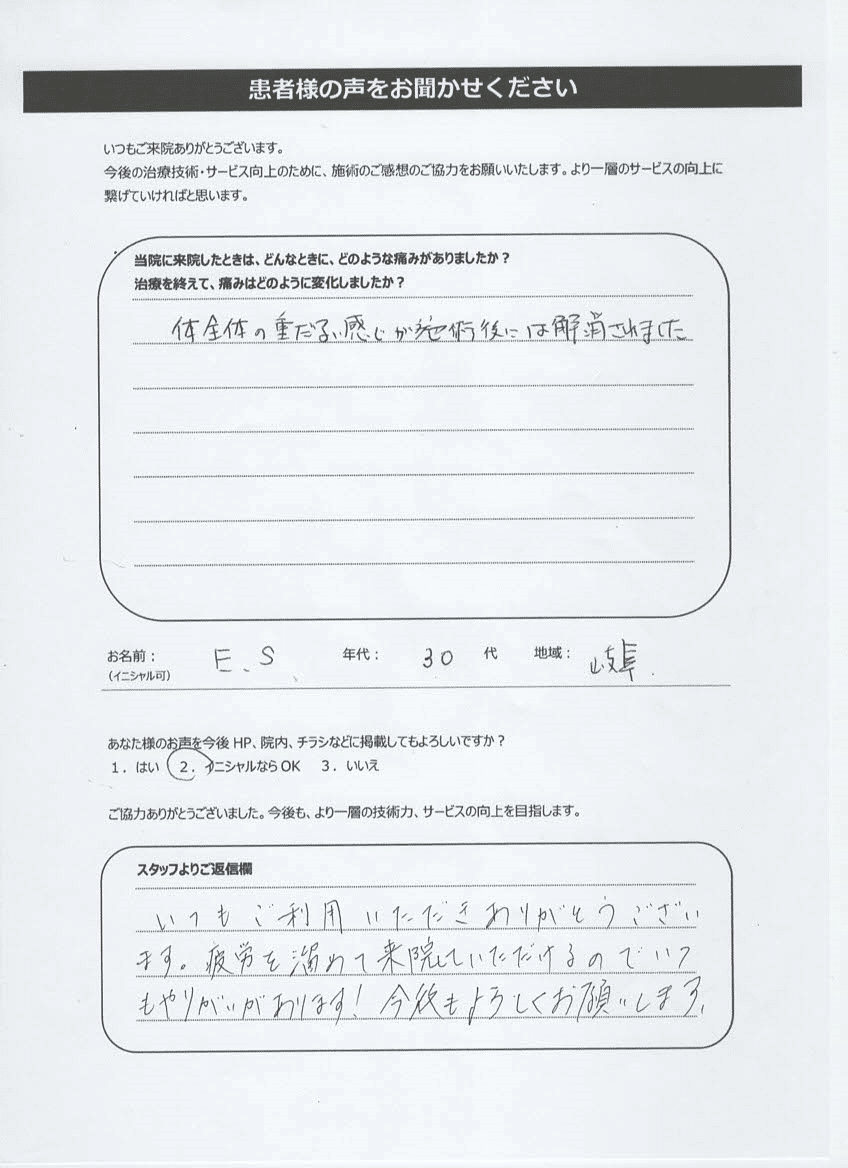 患者様の声をお聞かせください
いつもご来院ありがとうございます。
今後の治療技術・サービス向上のために、施術のご感想のご協力をお願いいたします。より一層のサービスの向上に
繋げていければと思います。
当院に来院したときは、どんなときに、どのような痛みがありましたか？
治療を終えて、痛みはどのように変化しましたか？
体全体の重だるい感じが施術後には解消されました
お名前： E.S 年代： 30 代 地域： 岐阜
（イニシャル可）
あなた様のお声を今後 HP、院内、チラシなどに掲載してもよろしいですか？
1．はい 2．イニシャルなら OK 3．いいえ
ご協力ありがとうございました。今後も、より一層の技術力、サービスの向上を目指します。
スタッフよりご返信欄
いつもご利用いただきありがとうござい
ます。疲労を溜めて来院していただけるのでいつ
もやりがいがあります！今後もよろしくお願いします。